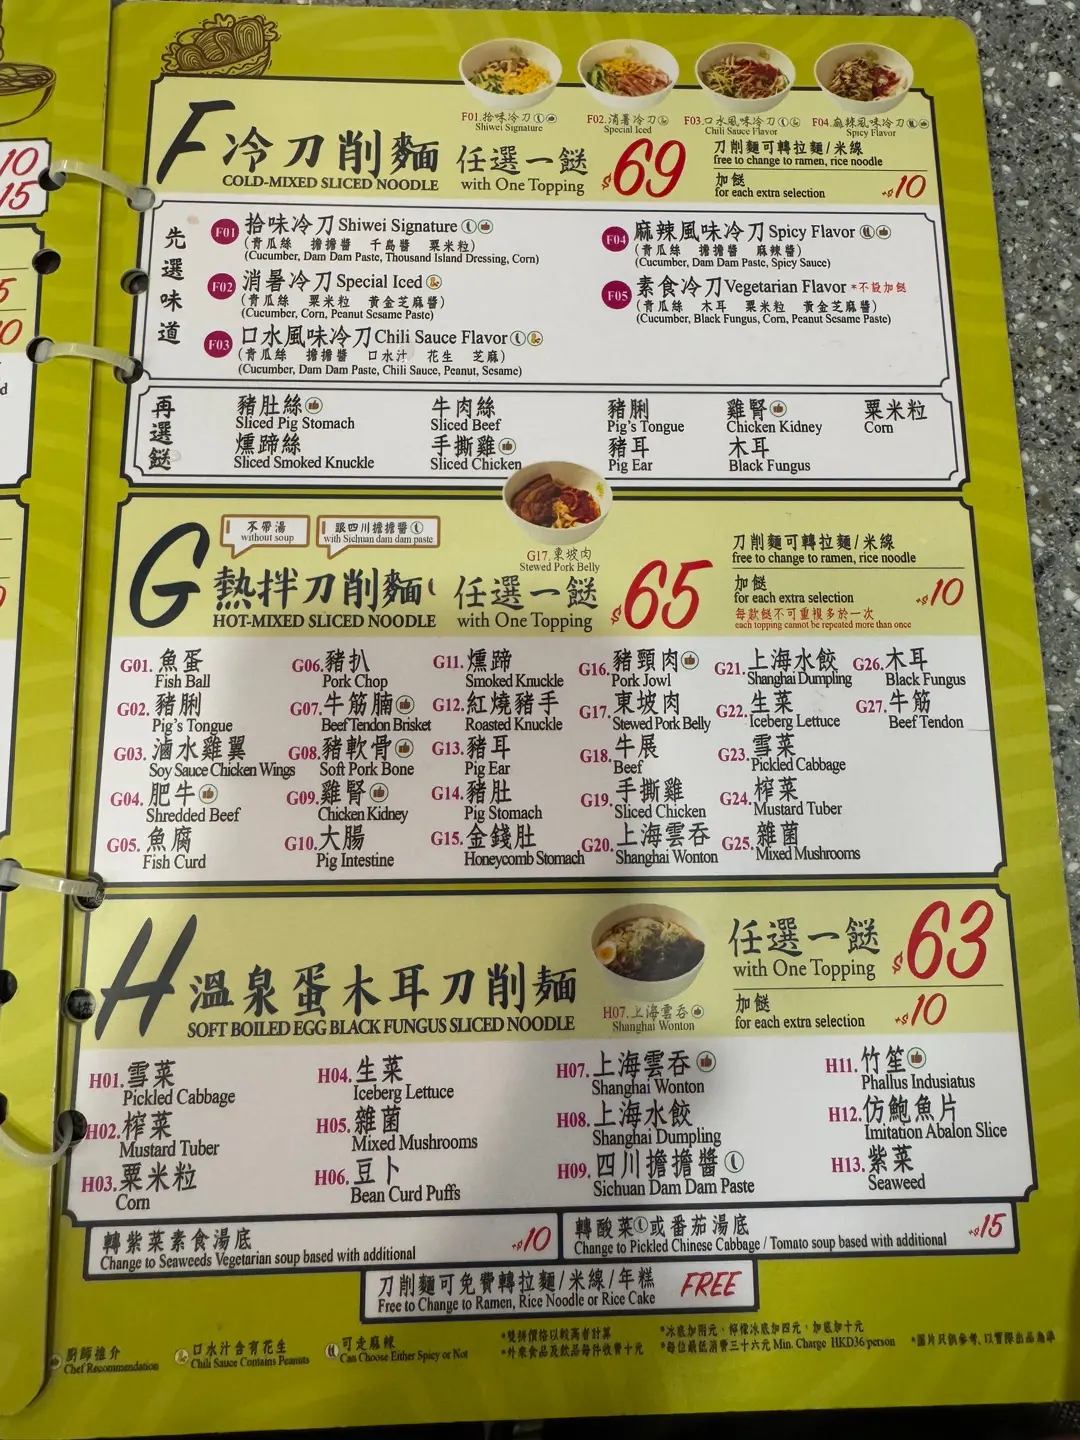 10
15
5
F01.拾味冷刀
Shiwei Signature
F02.消暑冷刀
Special Iced
F03.口水風味冷刀
Chili Sauce Flavor
F04.麻辣風味冷刀
Spicy Flavor
F 冷刀削麵 任選一餸 $69
COLD-MIXED SLICED NOODLE with One Topping
刀削麵可轉拉麵/米線
free to change to ramen, rice noodle
加餸
for each extra selection +$10
先選味道
F01 拾味冷刀 Shiwei Signature
(青瓜絲 擔擔醬 千島醬 粟米粒)
(Cucumber, Dam Dam Paste, Thousand Island Dressing, Corn)
F02 消暑冷刀 Special Iced
(青瓜絲 粟米粒 黃金芝麻醬)
(Cucumber, Corn, Peanut Sesame Paste)
F03 口水風味冷刀 Chili Sauce Flavor
(青瓜絲 擔擔醬 口水汁 花生 芝麻)
(Cucumber, Dam Dam Paste, Chili Sauce, Peanut, Sesame)
F04 麻辣風味冷刀 Spicy Flavor
(青瓜絲 擔擔醬 麻辣醬)
(Cucumber, Dam Dam Paste, Spicy Sauce)
F05 素食冷刀 Vegetarian Flavor *不設加餸
(青瓜絲 木耳 粟米粒 黃金芝麻醬)
(Cucumber, Black Fungus, Corn, Peanut Sesame Paste)
再選餸
豬肚絲 牛肉絲 豬脷 雞腎 粟米粒
Sliced Pig Stomach Sliced Beef Pig's Tongue Chicken Kidney Corn
燻蹄絲 手撕雞 豬耳 木耳
Sliced Smoked Knuckle Sliced Chicken Pig Ear Black Fungus
不帶湯
without soup
跟四川擔擔醬
with Sichuan dam dam paste
G17.東坡肉
Stewed Pork Belly
G 熱拌刀削麵 任選一餸 $65
HOT-MIXED SLICED NOODLE with One Topping
刀削麵可轉拉麵/米線
free to change to ramen, rice noodle
加餸
for each extra selection +$10
每款餸不可重複多於一次
each topping cannot be repeated more than once
G01. 魚蛋
Fish Ball
G02. 豬脷
Pig's Tongue
G03. 滷水雞翼
Soy Sauce Chicken Wings
G04. 肥牛
Shredded Beef
G05. 魚腐
Fish Curd
G06. 豬扒
Pork Chop
G07. 牛筋腩
Beef Tendon Brisket
G08. 豬軟骨
Soft Pork Bone
G09. 雞腎
Chicken Kidney
G10. 大腸
Pig Intestine
G11. 燻蹄
Smoked Knuckle
G12. 紅燒豬手
Roasted Knuckle
G13. 豬耳
Pig Ear
G14. 豬肚
Pig Stomach
G15. 金錢肚
Honeycomb Stomach
G16. 豬頸肉
Pork Jowl
G17. 東坡肉
Stewed Pork Belly
G18. 牛展
Beef
G19. 手撕雞
Sliced Chicken
G20. 上海雲吞
Shanghai Wonton
G21. 上海水餃
Shanghai Dumpling
G22. 生菜
Iceberg Lettuce
G23. 雪菜
Pickled Cabbage
G24. 榨菜
Mustard Tuber
G25. 雜菌
Mixed Mushrooms
G26. 木耳
Black Fungus
G27. 牛筋
Beef Tendon
H 溫泉蛋木耳刀削麵
SOFT BOILED EGG BLACK FUNGUS SLICED NOODLE
H07.上海雲吞
Shanghai Wonton
任選一餸 $63
with One Topping
加餸
for each extra selection +$10
H01. 雪菜
Pickled Cabbage
H02. 榨菜
Mustard Tuber
H03. 粟米粒
Corn
H04. 生菜
Iceberg Lettuce
H05. 雜菌
Mixed Mushrooms
H06. 豆卜
Bean Curd Puffs
H07. 上海雲吞
Shanghai Wonton
H08. 上海水餃
Shanghai Dumpling
H09. 四川擔擔醬
Sichuan Dam Dam Paste
H11. 竹笙
Phallus Indusiatus
H12. 仿鮑魚片
Imitation Abalon Slice
H13. 紫菜
Seaweed
轉紫菜素食湯底
Change to Seaweeds Vegetarian soup based with additional +$10
轉酸菜或番茄湯底
Change to Pickled Chinese Cabbage / Tomato soup based with additional +$15
刀削麵可免費轉拉麵/米線/年糕
Free to Change to Ramen, Rice Noodle or Rice Cake FREE
廚師推介
Chef Recommendation
口水汁含有花生
Chili Sauce Contains Peanuts
可走麻辣
Can Choose Either Spicy or Not
*雙拼價格以較高者計算
*外來食品及飲品每件收費十元
*冰底加兩元，檸檬冰底加四元，加底加十元
*每位最低消費三十六元 Min. Charge HKD36/person
*圖片只供參考，以實際出品為準